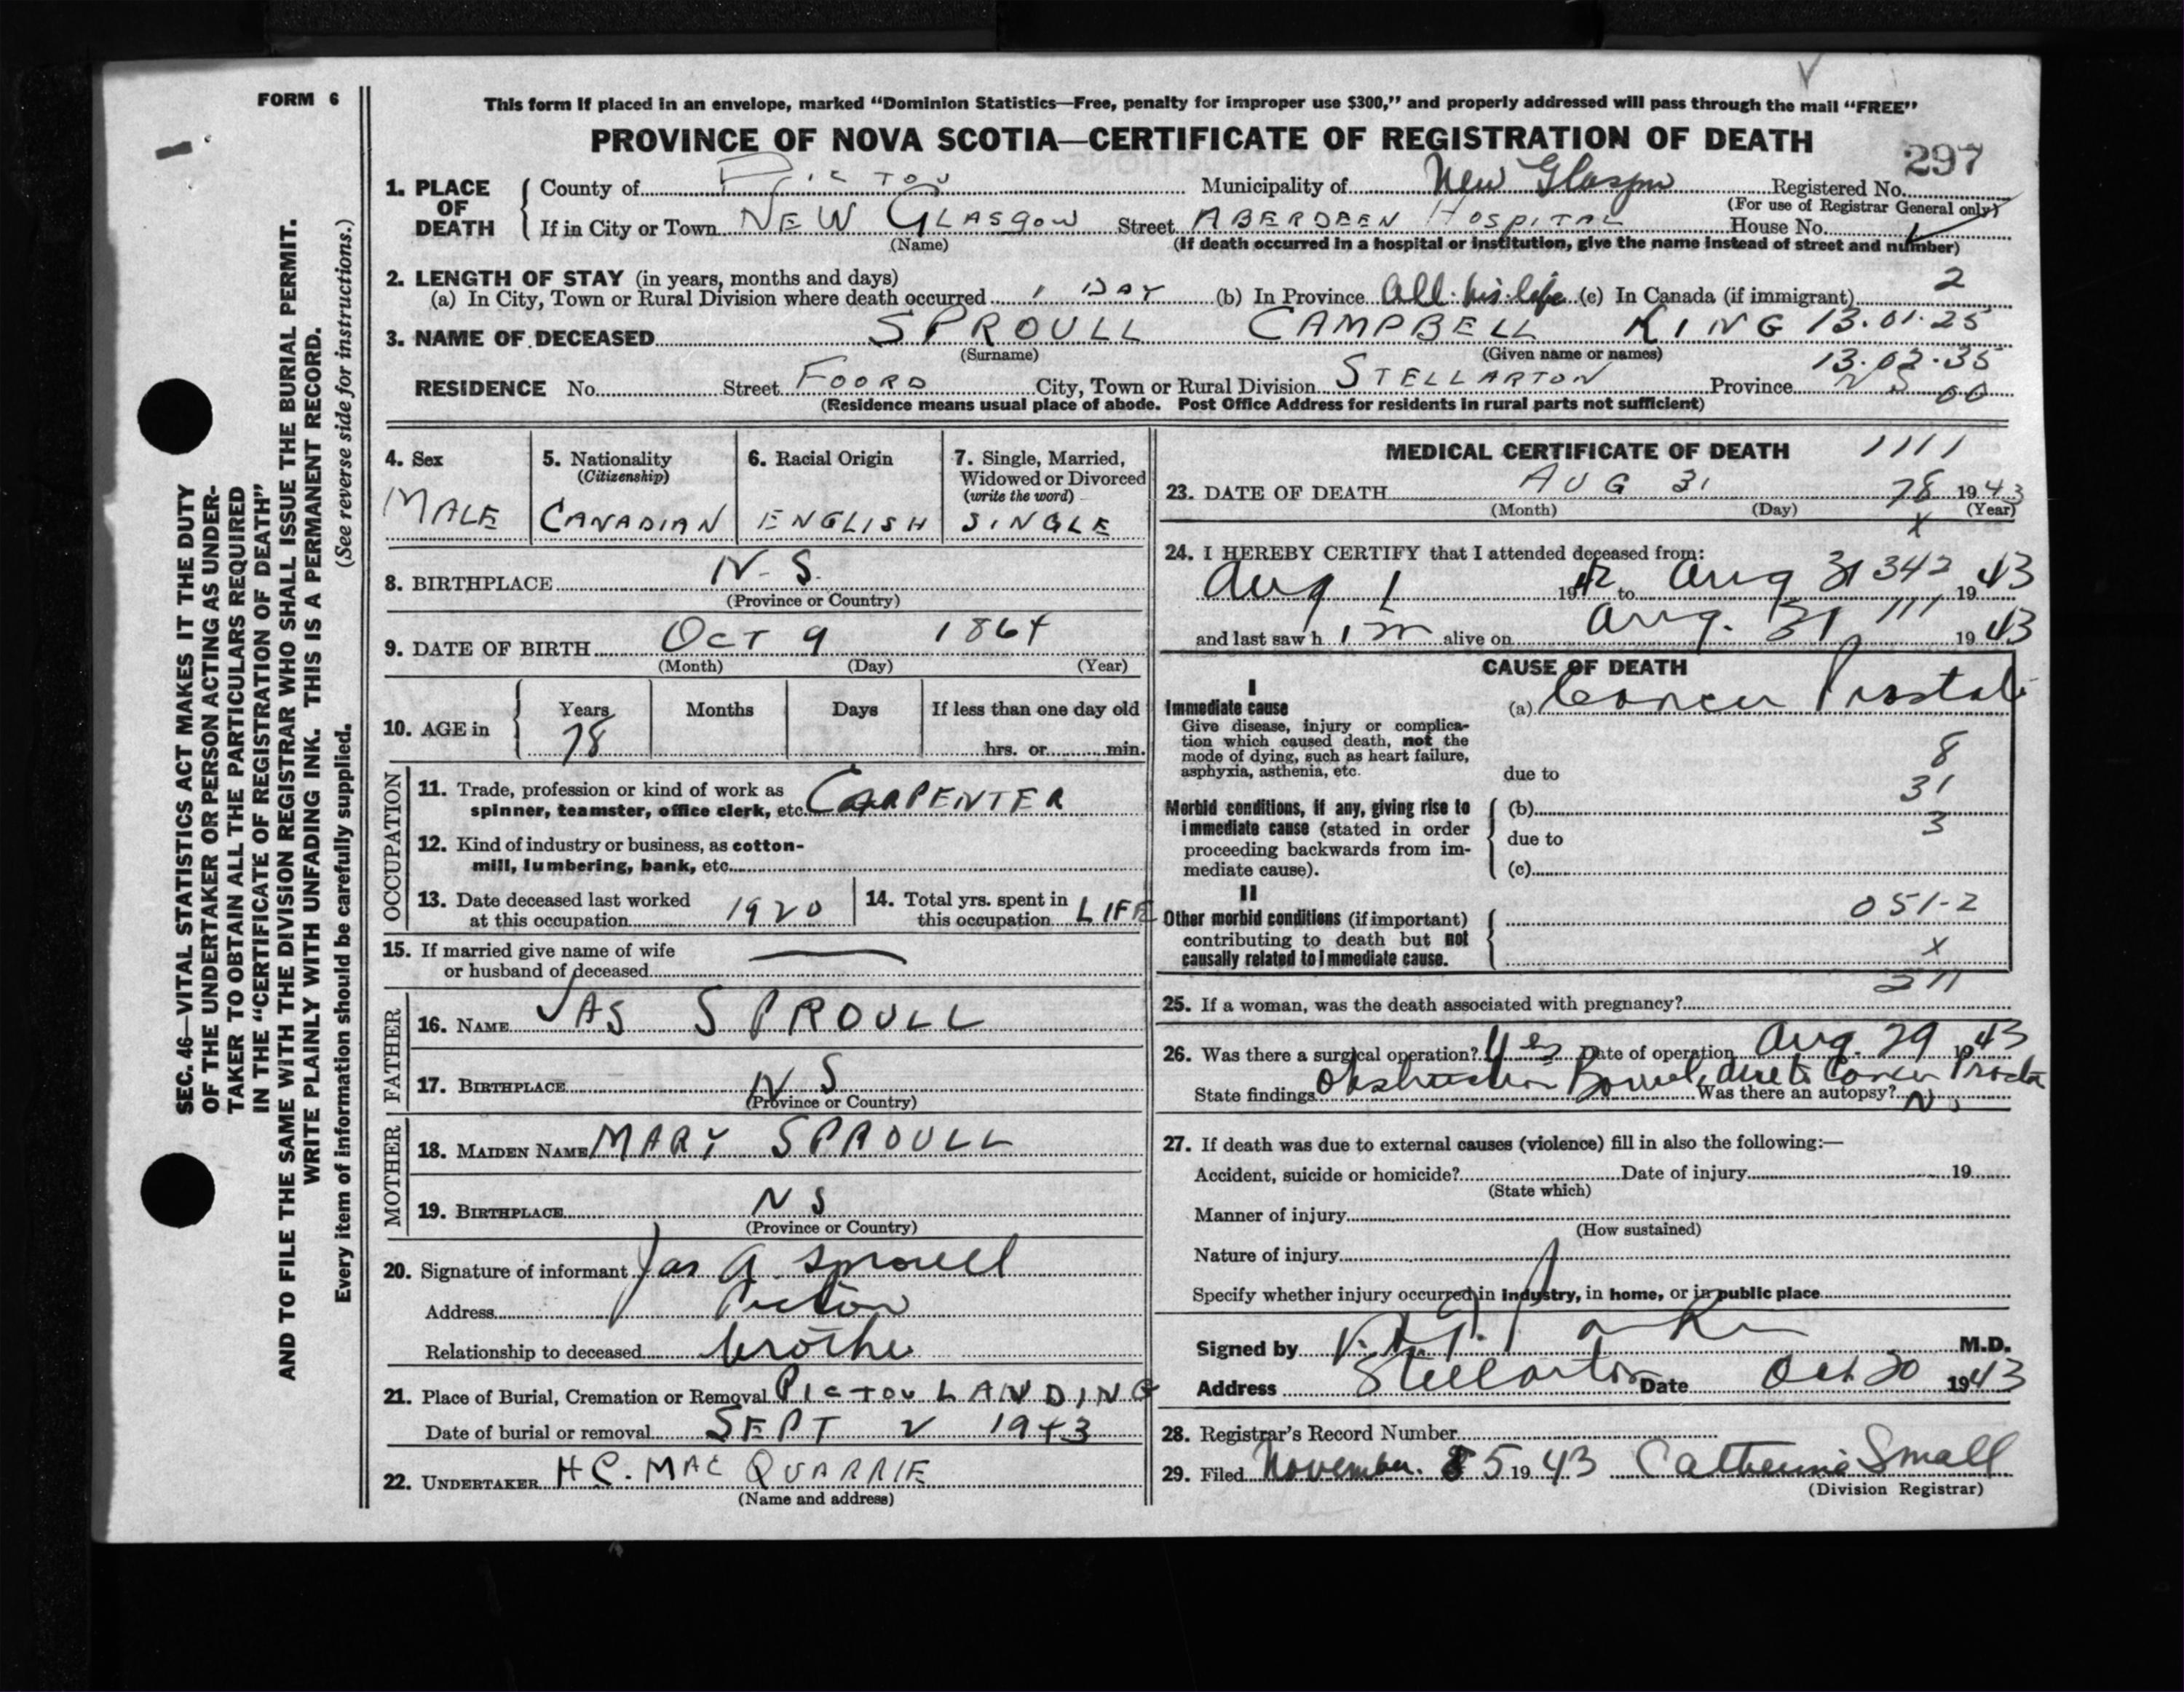 FORM 6
SEC. 46—VITAL STATISTICS ACT MAKES IT THE DUTY
OF THE UNDERTAKER OR PERSON ACTING AS UNDER-
TAKER TO OBTAIN ALL THE PARTICULARS REQUIRED
IN THE "CERTIFICATE OF REGISTRATION OF DEATH"
AND TO FILE THE SAME WITH THE DIVISION REGISTRAR WHO SHALL ISSUE THE BURIAL PERMIT.
WRITE PLAINLY WITH UNFADING INK. THIS IS A PERMANENT RECORD.
Every item of information should be carefully supplied. (See reverse side for instructions.)
This form if placed in an envelope, marked "Dominion Statistics—Free, penalty for improper use $300," and properly addressed will pass through the mail "FREE"
PROVINCE OF NOVA SCOTIA—CERTIFICATE OF REGISTRATION OF DEATH
297
1. PLACE OF DEATH County of Pictou Municipality of New Glasgow Registered No.
(For use of Registrar General only)
If in City or Town NEW GLASGOW Street ABERDEEN HOSPITAL House No.
(Name) (If death occurred in a hospital or institution, give the name instead of street and number)
2. LENGTH OF STAY (in years, months and days)
(a) In City, Town or Rural Division where death occurred 1 DAY (b) In Province All his life (c) In Canada (if immigrant) 2
3. NAME OF DECEASED SPROULL CAMPBELL KING 13.01.25
(Surname) (Given name or names) 13.02.35
RESIDENCE No. Street FOORD City, Town or Rural Division STELLARTON Province NS 00
(Residence means usual place of abode. Post Office Address for residents in rural parts not sufficient)
4. Sex MALE
5. Nationality (Citizenship) CANADIAN
6. Racial Origin ENGLISH
7. Single, Married, Widowed or Divorced (write the word) SINGLE
8. BIRTHPLACE N.S.
(Province or Country)
9. DATE OF BIRTH OCT 9 1864
(Month) (Day) (Year)
10. AGE in Years 78 Months Days If less than one day old
hrs. or min.
OCCUPATION
11. Trade, profession or kind of work as
spinner, teamster, office clerk, etc. CARPENTER
12. Kind of industry or business, as cotton-
mill, lumbering, bank, etc.
13. Date deceased last worked
at this occupation 1920
14. Total yrs. spent in
this occupation LIFE
15. If married give name of wife
or husband of deceased
FATHER
16. NAME JAS SPROULL
17. BIRTHPLACE NS
(Province or Country)
MOTHER
18. MAIDEN NAME MARY SPROULL
19. BIRTHPLACE NS
(Province or Country)
20. Signature of informant Jas A Sproull
Address Pictou
Relationship to deceased brother
21. Place of Burial, Cremation or Removal PICTOU LANDING
Date of burial or removal SEPT 2 1943
22. UNDERTAKER H C. MAC QUARRIE
(Name and address)
MEDICAL CERTIFICATE OF DEATH 1111
23. DATE OF DEATH AUG 31 78 1943
(Month) (Day) (Year)
x
24. I HEREBY CERTIFY that I attended deceased from:
Aug 1 1942 to Aug 31 342 1943
and last saw h im alive on Aug. 31 111 1943
CAUSE OF DEATH
I
Immediate cause (a) Cancer Prostate
Give disease, injury or complica-
tion which caused death, not the
mode of dying, such as heart failure,
asphyxia, asthenia, etc. due to
8
31
3
Morbid conditions, if any, giving rise to (b)
immediate cause (stated in order due to
proceeding backwards from im-
mediate cause). (c)
II
Other morbid conditions (if important) 051-2
contributing to death but not
causally related to immediate cause. x
25. If a woman, was the death associated with pregnancy?
26. Was there a surgical operation? Yes Date of operation Aug. 29 1943
State findings Obstruction Bowel, due to Cancer Prostate
Was there an autopsy? No
27. If death was due to external causes (violence) fill in also the following:—
Accident, suicide or homicide? Date of injury 19
(State which)
Manner of injury
(How sustained)
Nature of injury
Specify whether injury occurred in industry, in home, or in public place
Signed by M.D.
Address Stellarton Date Oct 20 1943
28. Registrar's Record Number
29. Filed November. 5 1943 Catherine Small
(Division Registrar)